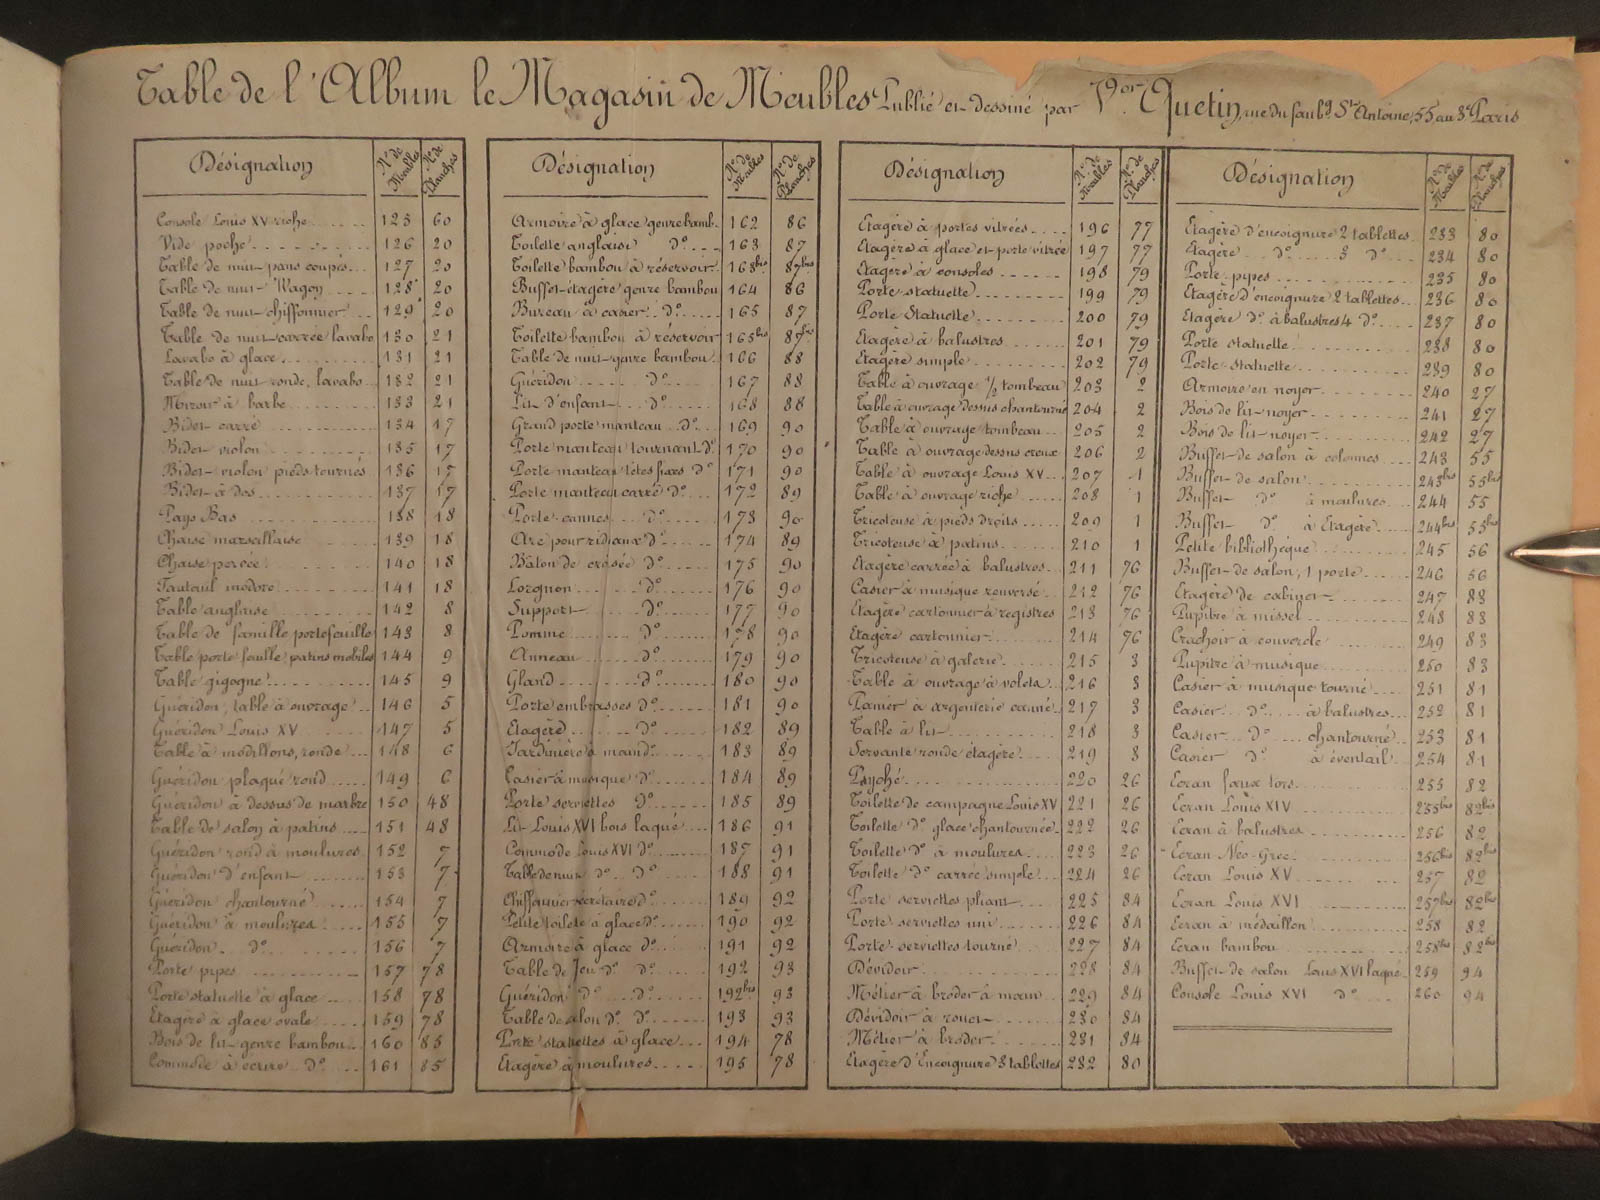 Table de l'Album le Magasin de Meubles Publié et dessiné par Vor. Quetin, rue du faubg St Antoine, 55, au 3e Paris
Désignation Nos de Meubles Nos de Planches
Console Louis XV riche 125 60
Vide poche 126 20
Table de nuit pans coupés 127 20
Table de nuit Wagon 128 20
Table de nuit chiffonnier 129 20
Table de nuit carrée lavabo 130 21
Lavabo à glace 131 21
Table de nuit ronde, lavabo 132 21
Miroir à barbe 133 21
Bidet carré 134 17
Bidet violon 135 17
Bidet violon pieds tournés 136 17
Bidet à dos 137 17
Pays Bas 138 18
Chaise marseillaise 139 18
Chaise percée 140 18
Fauteuil inodore 141 18
Table anglaise 142 8
Table de famille portefeuille 143 8
Table porte feuille patins mobiles 144 9
Table gigogne 145 9
Guéridon, table à ouvrage 146 5
Guéridon Louis XV 147 5
Table à modillons, ronde 148 6
Guéridon plaqué rond 149 6
Guéridon à dessus de marbre 150 48
Table de salon à patins 151 48
Guéridon rond à moulures 152 7
Guéridon d'enfant 153 7
Guéridon chantourné 154 7
Guéridon à moulures 155 7
Guéridon do 156 7
Porte pipes 157 78
Porte statuette à glace 158 78
Etagère à glace ovale 159 78
Bois de lit genre bambou 160 85
Commode à écrire do 161 85
Désignation Nos de Meubles Nos de Planches
Armoire à glace genre bamb. 162 86
Toilette anglaise do 163 87
Toilette bambou à réservoir 163bis 87bis
Buffet-étagère genre bambou 164 86
Bureau à casier do 165 87
Toilette bambou à réservoir 165bis 87bis
Table de nuit genre bambou 166 88
Guéridon do 167 88
Lit d'enfant do 168 88
Grand porte manteau do 169 90
Porte manteau tournant do 170 90
Porte manteau têtes fixes do 171 90
Porte manteau carré do 172 89
Porte cannes do 173 90
Arc pour rideaux do 174 89
Bâton de croisée do 175 90
Lorgnon do 176 90
Support do 177 90
Pomme do 178 90
Anneau do 179 90
Gland do 180 90
Porte embrasses do 181 90
Etagère do 182 89
Jardinière à main do 183 89
Casier à musique do 184 89
Porte serviettes do 185 89
Lit Louis XVI bois laqué 186 91
Commode Louis XVI do 187 91
Table de nuit do do 188 91
Chiffonnier secrétaire do 189 92
Petite toilette à glace do 190 92
Armoire à glace do 191 92
Table de Jeu do do 192 93
Guéridon do do 192bis 93
Table de salon do do 193 93
Porte statuettes à glace 194 78
Etagère à moulures 195 78
Désignation Nos de Meubles Nos de Planches
Etagère à portes vitrées 196 77
Etagère à glace et porte vitrée 197 77
Etagère à consoles 198 79
Porte statuette 199 79
Porte Statuette 200 79
Etagère à balustres 201 79
Etagère simple 202 79
Table à ouvrage 1/2 tombeau 203 2
Table à ouvrage dessus chantourné 204 2
Table à ouvrage tombeau 205 2
Table à ouvrage dessus creux 206 2
Table à ouvrage Louis XV 207 1
Table à ouvrage riche 208 1
Tricoteuse à pieds droits 209 1
Tricoteuse à patins 210 1
Etagère carrée à balustres 211 76
Casier à musique renversé 212 76
Etagère cartonnier à registres 213 76
Etagère cartonnier 214 76
Tricoteuse à galerie 215 3
Table à ouvrage à volets 216 3
Panier à argenterie canné 217 3
Table à lit 218 3
Servante ronde étagère 219 3
Psyché 220 26
Toilette de campagne Louis XV 221 26
Toilette do glace chantournée 222 26
Toilette do à moulures 223 26
Toilette do carrée simple 224 26
Porte serviettes pliant 225 84
Porte serviettes uni 226 84
Porte-serviettes tourné 227 84
Dévidoir 228 84
Métier à broder à main 229 84
Dévidoir à rouet 230 84
Métier à broder 231 84
Etagère d'Encoignure 3 tablettes 232 80
Désignation Nos de Meubles Nos de Planches
Etagère d'encoignure 2 tablettes 233 80
Etagère do 3 do 234 80
Porte-pipes 235 80
Etagère d'encoignure 2 tablettes 236 80
Etagère do à balustres 4 do 237 80
Porte statuette 238 80
Porte-statuette 239 80
Armoire en noyer 240 27
Bois de lit noyer 241 27
Bois de lit noyer 242 27
Buffet de salon à colonnes 243 55
Buffet de salon 243bis 55bis
Buffet do à moulures 244 55
Buffet do à Etagère 244bis 55bis
Petite bibliothèque 245 56
Buffet de salon, 1 porte 246 56
Etagère de cabinet 247 83
Pupitre à missel 248 83
Crachoir à couvercle 249 83
Pupitre à musique 250 83
Casier à musique tourné 251 81
Casier do à balustres 252 81
Casier do chantourné 253 81
Casier do à éventail 254 81
Ecran faux tors 255 82
Ecran Louis XIV 255bis 82bis
Ecran à balustres 256 82
Ecran Néo-Grec 256bis 82bis
Ecran Louis XV 257 82
Ecran Louis XVI 257bis 82bis
Ecran à médaillon 258 82
Ecran bambou 258bis 82bis
Buffet de salon Louis XVI laqué 259 94
Console Louis XVI do 260 94